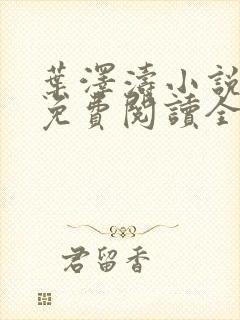 葉澤濤小說
免費閱讀全
君留香